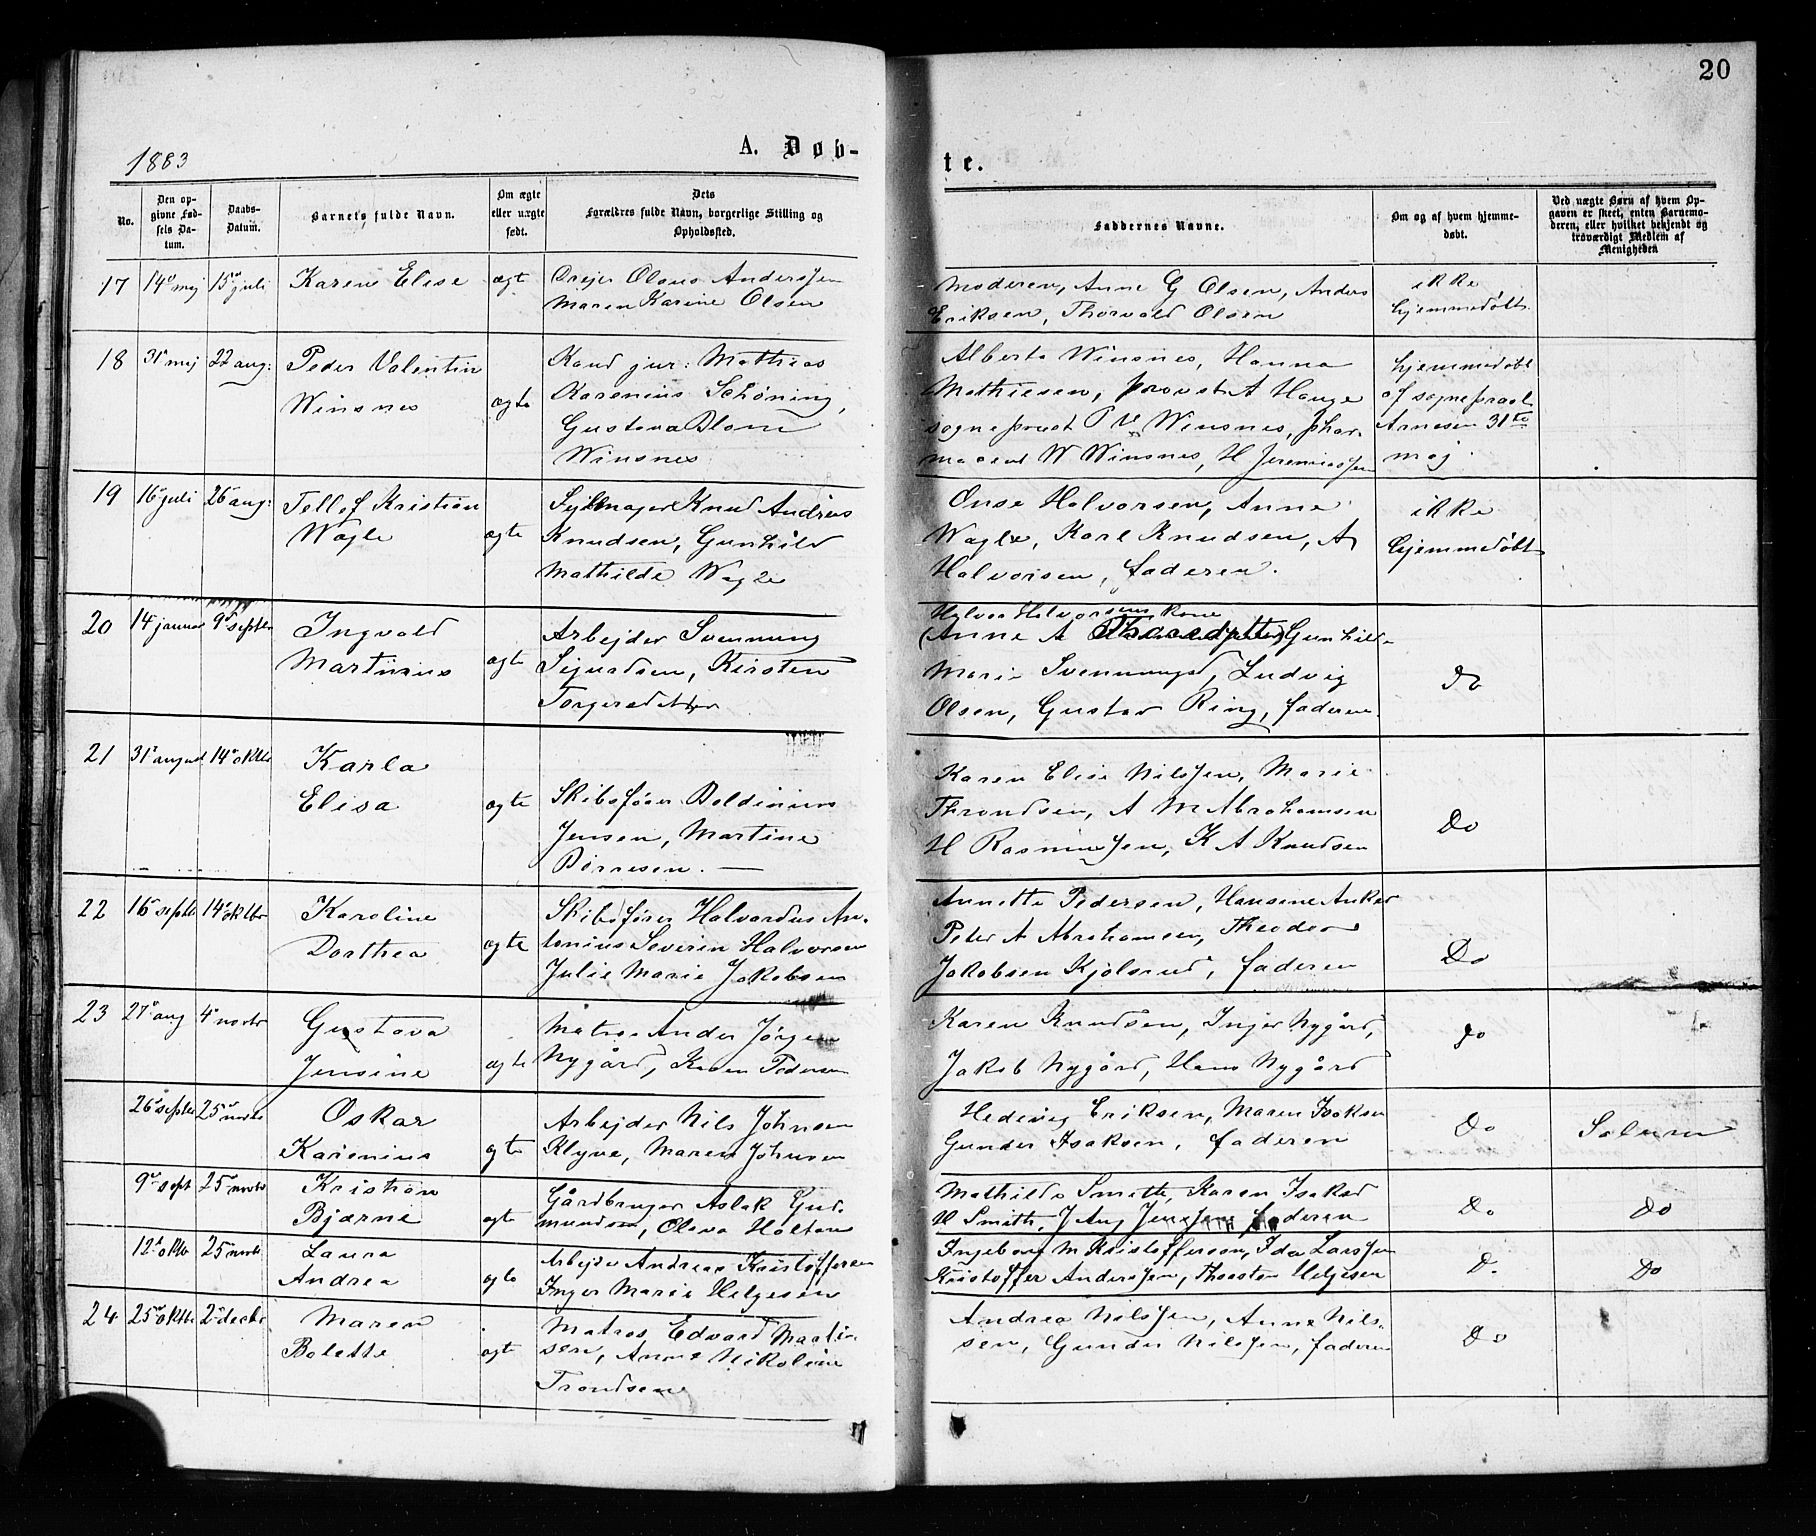 20
1883
A. Døb-
te.
No.
Den op-
givne Fød-
sels Da-
tum.
Daabs-
Datum.
Barnets fulde Navn.
Om ægte
eller uægte
født.
Dets
Forældres fulde Navn, borgerlige Stilling og
Opholdssted.
Faddernes Navne.
Om og af hvem hjemme-
døbt.
Ved uægte Børn af hvem Op-
gaven er skeet, enten Barnemo-
deren, eller hvilket bekjendt og
troværdigt Medlem af
Menigheden
17 14 mej 15 juli Karen Elise ægt Drejer Olaus Anderssen
Maren Karine Olsen
Moderen, Anne G Olsen, Anders
Eriksen, Thorvald Olsen
ikke
hjemmedøbt
18 31 mej 22 aug: Peder Valentin
Winsnes
ægte
Kand jur: Mathias
Karenius Schøning,
Gustava Blom
Winsnes
Alberta Winsnes, Hanna
Mathiesen, provst A Hauge
sognepræst P V Winsnes, phar-
maceut W Winsnes, H Jeremiassen
hjemmedøbt
af sognepræst
Arnesen 31te
mej.
19 16 juli 26 aug: Tellef Kristian
Wagle
ægte
Sejlmager Knud Andreas
Knudsen, Gunhild
Mathilde Wagle
Onse Halvorsen, Anne
Wagle, Karl Knudsen, A
Halvorsen, faderen.
ikke
hjemmedøbt
20 14 januar 9 septbr Ingvald
Martinius
ægte
Arbejder Svennung
Sigurdsen, Kirsten
Torgersdatter
Halvor Halvorsens kone
(Anne A Gunhild
Marie Svennungsd, Ludvig
Olsen, Gustav Ring, faderen.
do
21 31 august 14 oktbr Karla
Elisa
ægte
Skibsfører Boldinius
Jensen, Martine
Børresen. —
Karen Elise Nilssen, Marie
Throndsen, A M Abrahamsen
H Rasmussen, K A Knudsen
Do
22 16 septbr 14 oktbr Karoline
Dorthea
ægte
Skibsfører Halvardus An-
tonius Severin Halvorsen
Julie Marie Jakobsen
Annette Pedersen, Hansene Anker
Peter A Abrahamsen, Theodor
Jakobsen Kjølsrud, faderen
Do
23 27 aug 4 novbr Gustava
Jensine
ægte
Matros Ander Jørgen
Nygård, Karen Pedersen
Karen Knudsen, Inger Nygård,
Jakob Nygård, Hans Nygård
do
26 septbr 25 novbr Oskar
Karenius
ægte
Arbejder Nils Johnsen
Klyve, Maren Johnsen
Hedevig Eriksen, Maren Isaksen
Gunder Isaksen, faderen
Do
Solum
9 sept 25 novbr Kristian
Bjarne
ægte
Gårdbruger Aslak Gud-
mundsen, Olava Holtan
Mathilde Smith, Karen Isaksd
H Smith, J Aug Jenssen, faderen
Do
Do
12 oktb 25 novb. Laura
Andrea
ægte
Arbejder Andreas Kristoffersen
Inger Marie Helgesen
Ingeborg M Kristoffersen, Ida Larssen
Kristoffer Anderssen, Thorsten Helgesen
D.
Do
24 25 oktbr 2 decbr Maren
Bolette
ægte
Matros Edvard Martin-
sen, Anne Nikoline
Trondsen
Andrea Nilssen, Anne Nils-
sen, Gunder Nilssen, faderen
Do